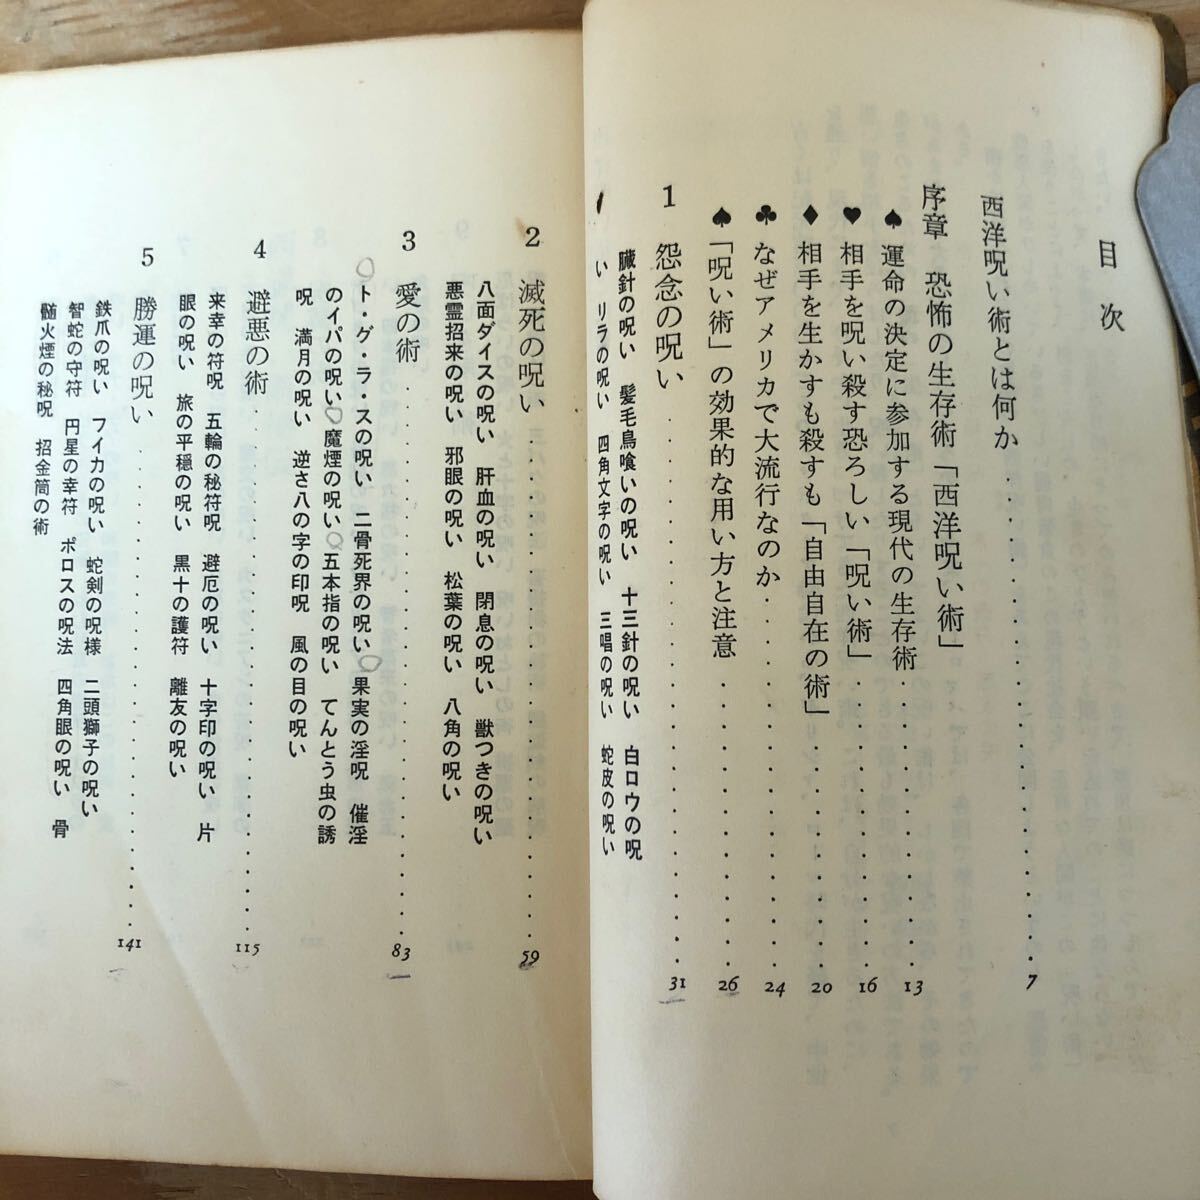 目次
西洋呪い術とは何か 7
序章 恐怖の生存術「西洋呪い術」
♠ 運命の決定に参加する現代の生存術 13
♥ 相手を呪い殺す恐ろしい「呪い術」 16
♦ 相手を生かすも殺すも「自由自在の術」 20
♣ なぜアメリカで大流行なのか 24
♠ 「呪い術」の効果的な用い方と注意 26
1 怨念の呪い 31
臓針の呪い 髪毛鳥喰いの呪い 十三針の呪い 白ロウの呪
い リラの呪い 四角文字の呪い 三唱の呪い 蛇皮の呪い
2 滅死の呪い 59
八面ダイスの呪い 肝血の呪い 閉息の呪い 獣つきの呪い
悪霊招来の呪い 邪眼の呪い 松葉の呪い 八角の呪い
3 愛の術 83
ト・グ・ラ・スの呪い 二骨死界の呪い 果実の淫呪 催淫
のイパの呪い 魔煙の呪い 五本指の呪い てんとう虫の誘
呪 満月の呪い 逆さ八の字の印呪 風の目の呪い
4 避悪の術 115
来幸の符呪 五輪の秘符呪 避厄の呪い 十字印の呪い 片
眼の呪い 旅の平穏の呪い 黒十の護符 離友の呪い
5 勝運の呪い 141
鉄爪の呪い フイカの呪い 蛇剣の呪様 二頭獅子の呪い
智蛇の守符 円星の幸符 ポロスの呪法 四角眼の呪い 骨
髄火煙の秘呪 招金筒の術